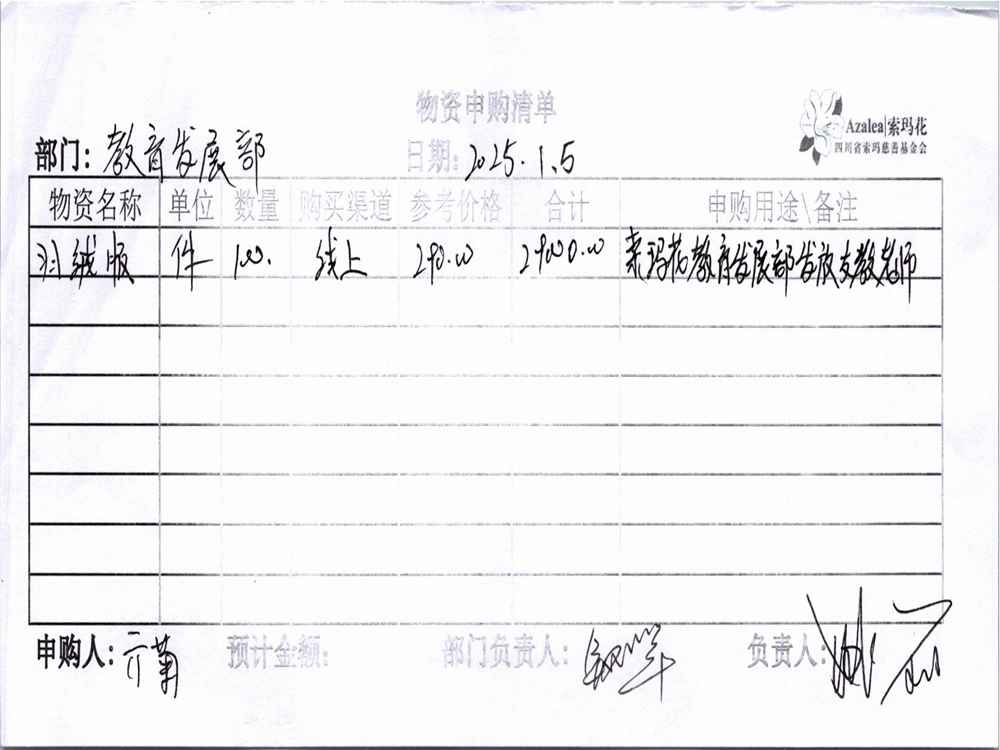 物资申购清单
Azalea|索玛花
四川省索玛慈善基金会
部门：教育发展部 日期：2025.1.5
物资名称 单位 数量 购买渠道 参考价格 合计 申购用途\备注
羽绒服 件 100. 线上 290.00 29000.00 索玛花教育发展部发放支教老师
申购人： 预计金额： 部门负责人： 负责人：